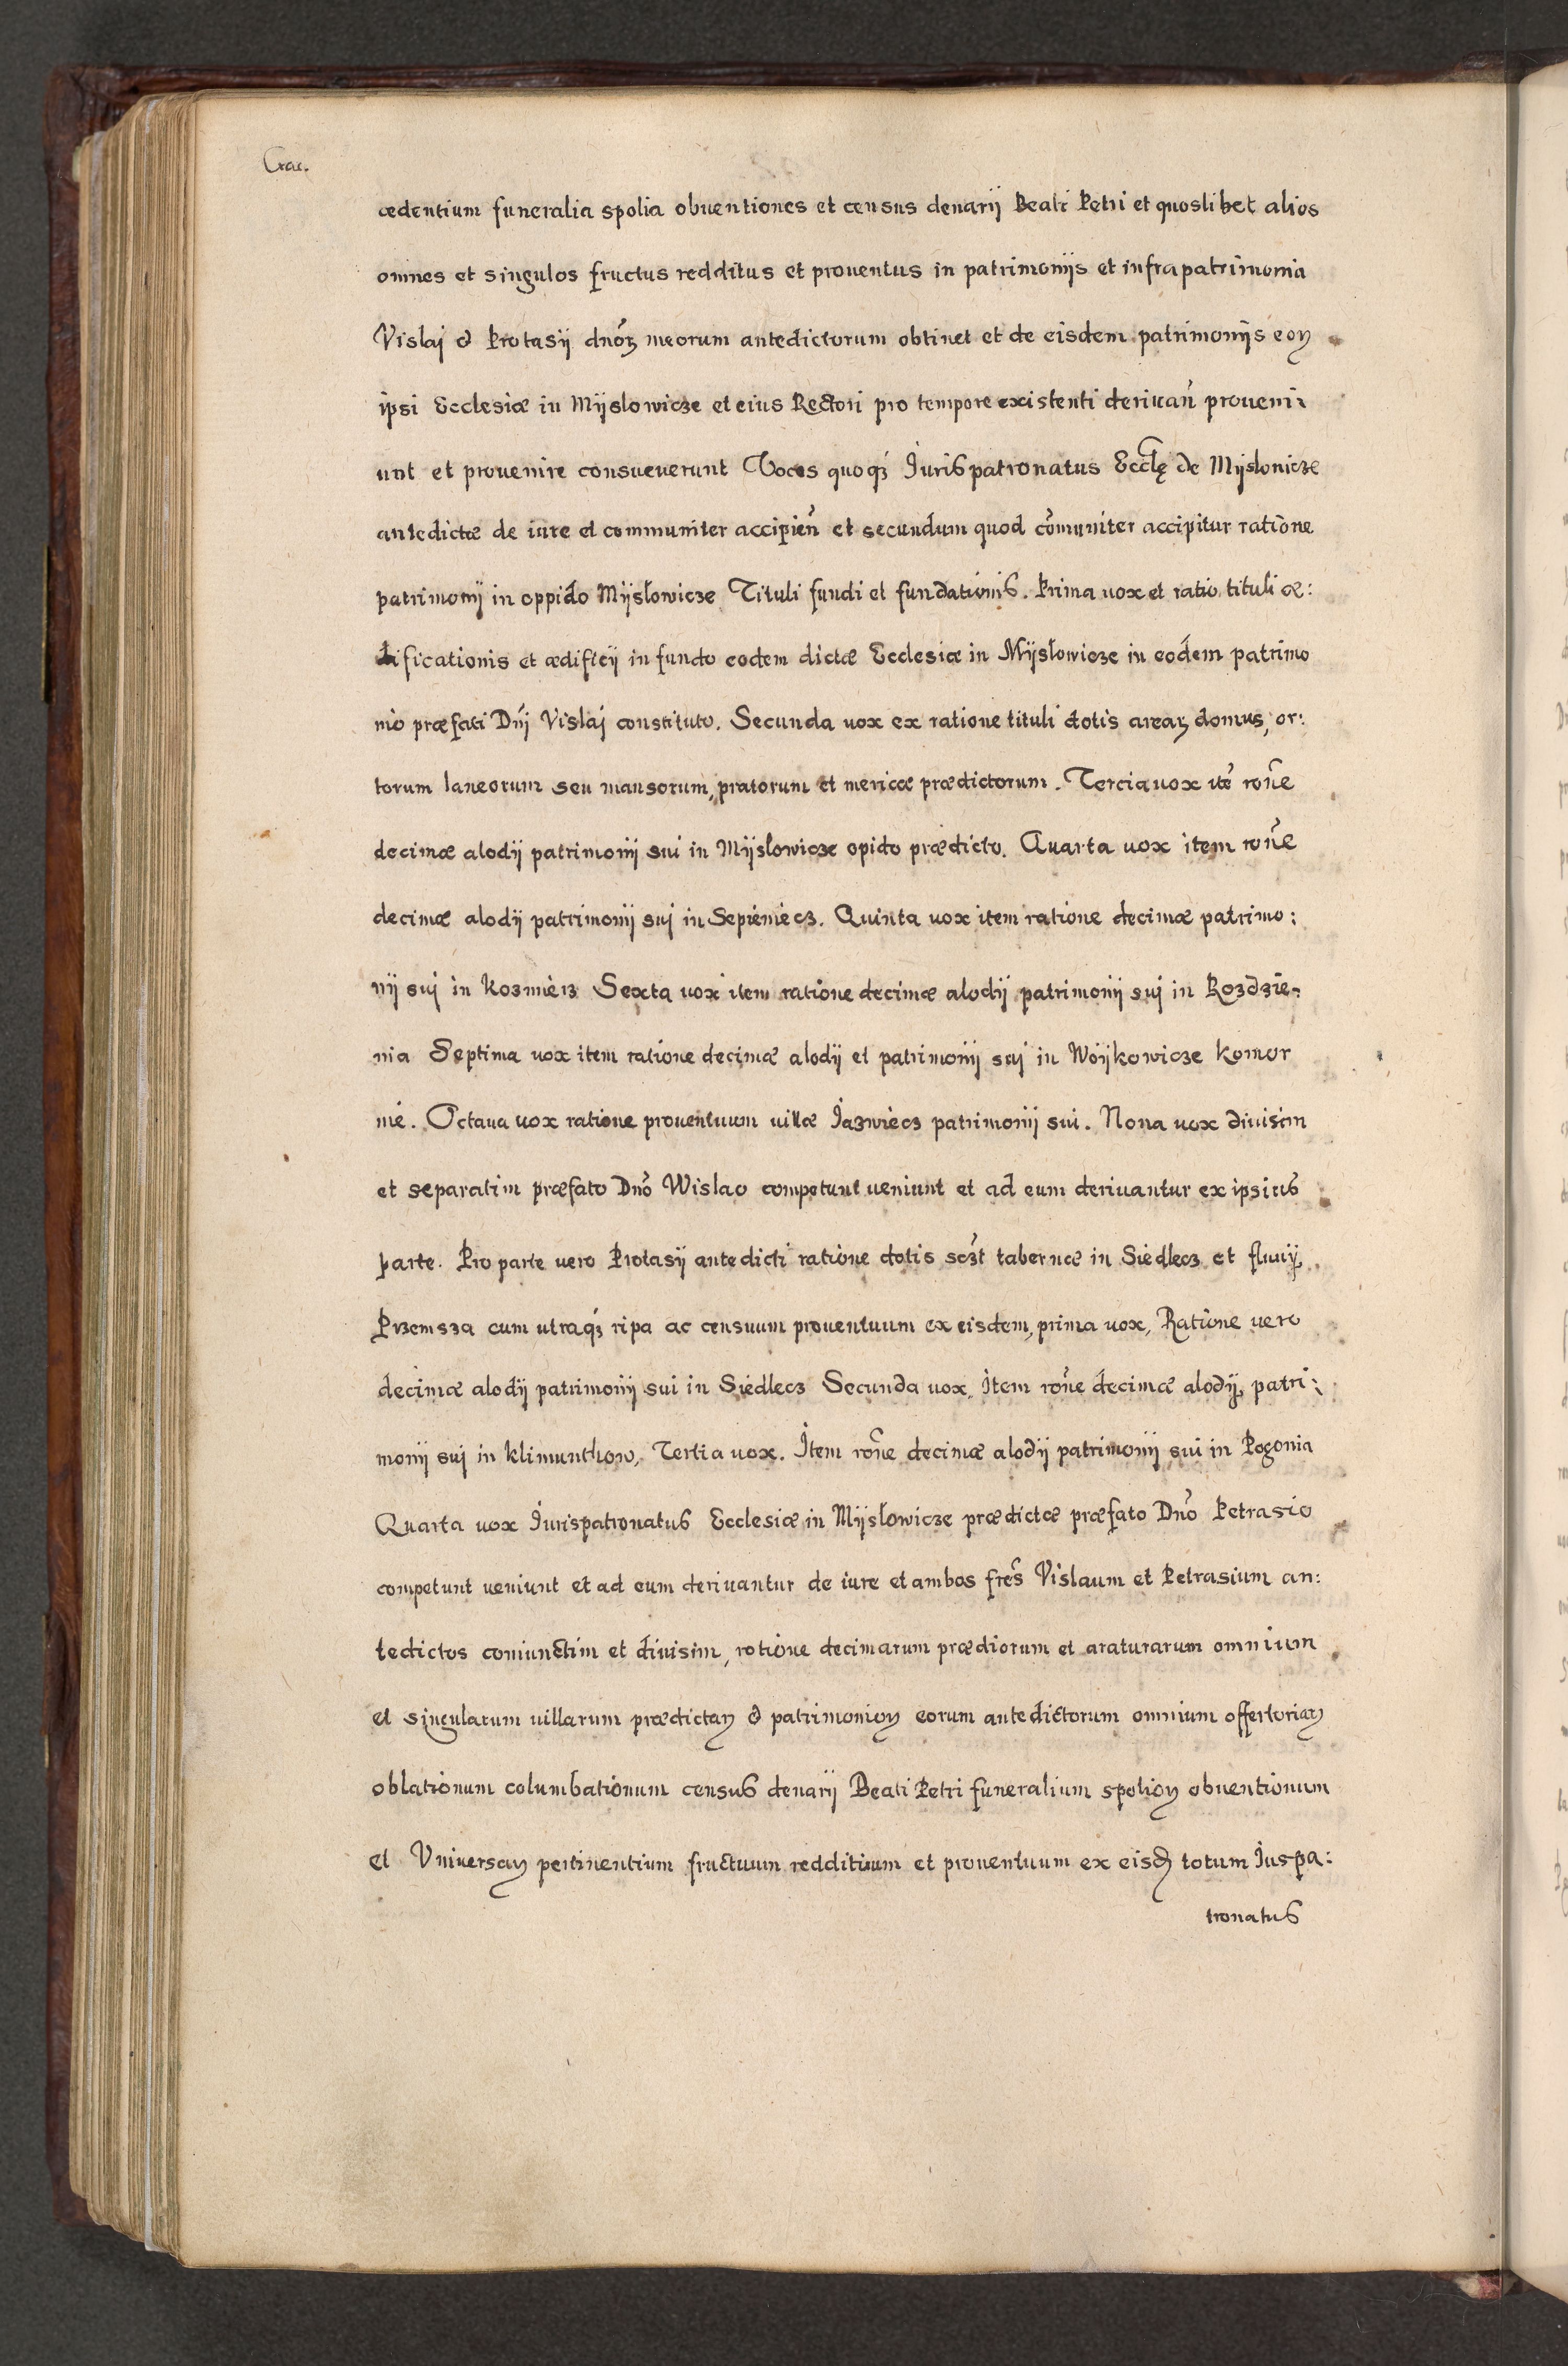 Crac.
cedentium funeralia spolia obuentiones et census denarij Beati Petri et quoslibet alios
omnes et singulos fructus redditus et prouentus in patrimonijs et infra patrimonia
Vislaj & Protasij dnõꝝ meorum antedictorum obtinet et de eisdem patrimonijs eoꝝ
ipsi Ecclesiæ in Mÿslowicze et eius Rectori pro tempore existenti deriuañ proueni:
unt et prouenire consueuerunt Voces quoqꝫ Iurispatronatus Eccłę de Mÿslowicze
antedictæ de iure et communiter accipieñ et secundum quod cõmuniter accipitur ratione
patrimonij in oppido Mÿslowicze Tituli fundi et fundationis. Prima uox et ratio tituli æ:
dificationis et ædificij in fundo eodem dictæ Ecclesiæ in Mÿslowicze in eodem patrimo
nio præfati Dñj Vislaj constituto. Secunda uox ex ratione tituli dotis areaꝝ domus, or:
torum laneorum seu mansorum, pratorum et mericæ prædictorum. Tercia uox itẽ rõne
decimæ alodij patrimonij sui in Mÿslowicze opido prædicto. Quarta uox item rõne
decimæ alodij patrimonij suj in Sepieniecz. Quinta uox item ratione decimæ patrimo:
nij suj in Kozmierz Sexta uox item ratione decimæ alodij patrimonij suj in Rozdzie-
nia Septima uox item ratione decimæ alodij et patrimonij suj in Woÿkowicze Komor
nie. Octaua uox ratione prouentuum uillæ Iazwiecz patrimonij sui. Nona uox diuisim
et separatim præfato Dnõ Wislao competunt ueniunt et ad eum deriuantur ex ipsius
parte. Pro parte uero Protasij antedicti ratione dotis sczt tabernæ in Siedlecz et fluuij
Przemsza cum utraqꝫ ripa ac censuum prouentuum ex eisdem, prima uox, Ratione uero
decimæ alodij patrimonij sui in Siedlecz Secunda uox, Item rõne decimæ alodij patri:
monij suj in Klimunthow, Tertia uox. Item rõne decimæ alodij patrimonij sui in Pogonia
Quarta uox Iurispatronatus Ecclesiæ in Mÿslowicze prædictæ præfato Dnõ Petrasio
competunt ueniunt et ad eum deriuantur de iure et ambos frẽs Vislaum et Petrasium an:
tedictos coniunctim et diuisim, ratione decimarum prædiorum et araturarum omnium
et singularum uillarum prædictaꝝ & patrimonioꝝ eorum antedictorum omnium offertoriaꝝ
oblationum columbationum census denarij Beati Petri funeralium spolioꝝ obuentionum
et Vniuersaꝝ pertinentium fructuum reddituum et prouentuum ex eisđ totum Iuspa:
tronatus